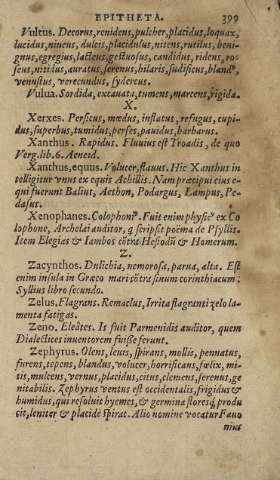 EPITHETA. 399
Vultus. Decorus, renidens, pulcher, placidus, loquax,
lucidus, niuens, dulcis, placidulus, nitens, rutilus, beni-
gnus, egregius, lacteus, gestuosus, candidus, ridens, ro-
seus, nitidus, auratus, serenus, hilaris, fudificus, bland⁹,
venustus, verecundus, sydereus.
Vulua. Sordida, excauata, tumens, marcens, rigida.
X.
Xerxes. Persicus, mœdus, inflatus, refugus, cupi-
dus, superbus, tumidus, perses, pauidus, barbarus.
Xanthus. Rapidus. Fluuius est Troadis, de quo
Verg. lib. 6. Aeneid.
Xanthus, equus. Volucer, flauus. Hic Xanthus in
telligitur vnus ex equis Achillis. Nam præcipui eius e-
qui fuerunt Baliut, Aethon, Podargus, Lampus, Pe-
dasus.
Xenophanes. Colophoni⁹. Fuit enim physic⁹ ex Co
lophone, Archelai auditor, q scripsit poëma de Psyllis.
Item Elegias & Iambos cōtra Hesiodū & Homerum.
Z.
Zacynthos. Dulichia, nemorosa, parua, alta. Est
enim insula in Græco mari cōtra sinum corinthiacum:
Syllius libro secundo.
Zelus. Flagrans. Remaclus, Irrita flagranti zelo la-
menta fatigas.
Zeno. Eleātes. Is fuit Parmenidis auditor, quem
Dialectices inuentorem fuisse ferunt.
Zephyrus. Olens, leuis, spirans, mollis, pennatus,
furens, tepens, blandus, volucer, horrificans, fœlix, mi-
tis, mulcens, vernus, placidus, citus, clemens, serenus, ge
nitabilis. Zephyrus ventus est occidentalis, frigidus &
humidus, qui resoluit hyemes, & germina floresq; produ
cit, leniter & placide spirat. Alio nomine vocatur Fauo
nius